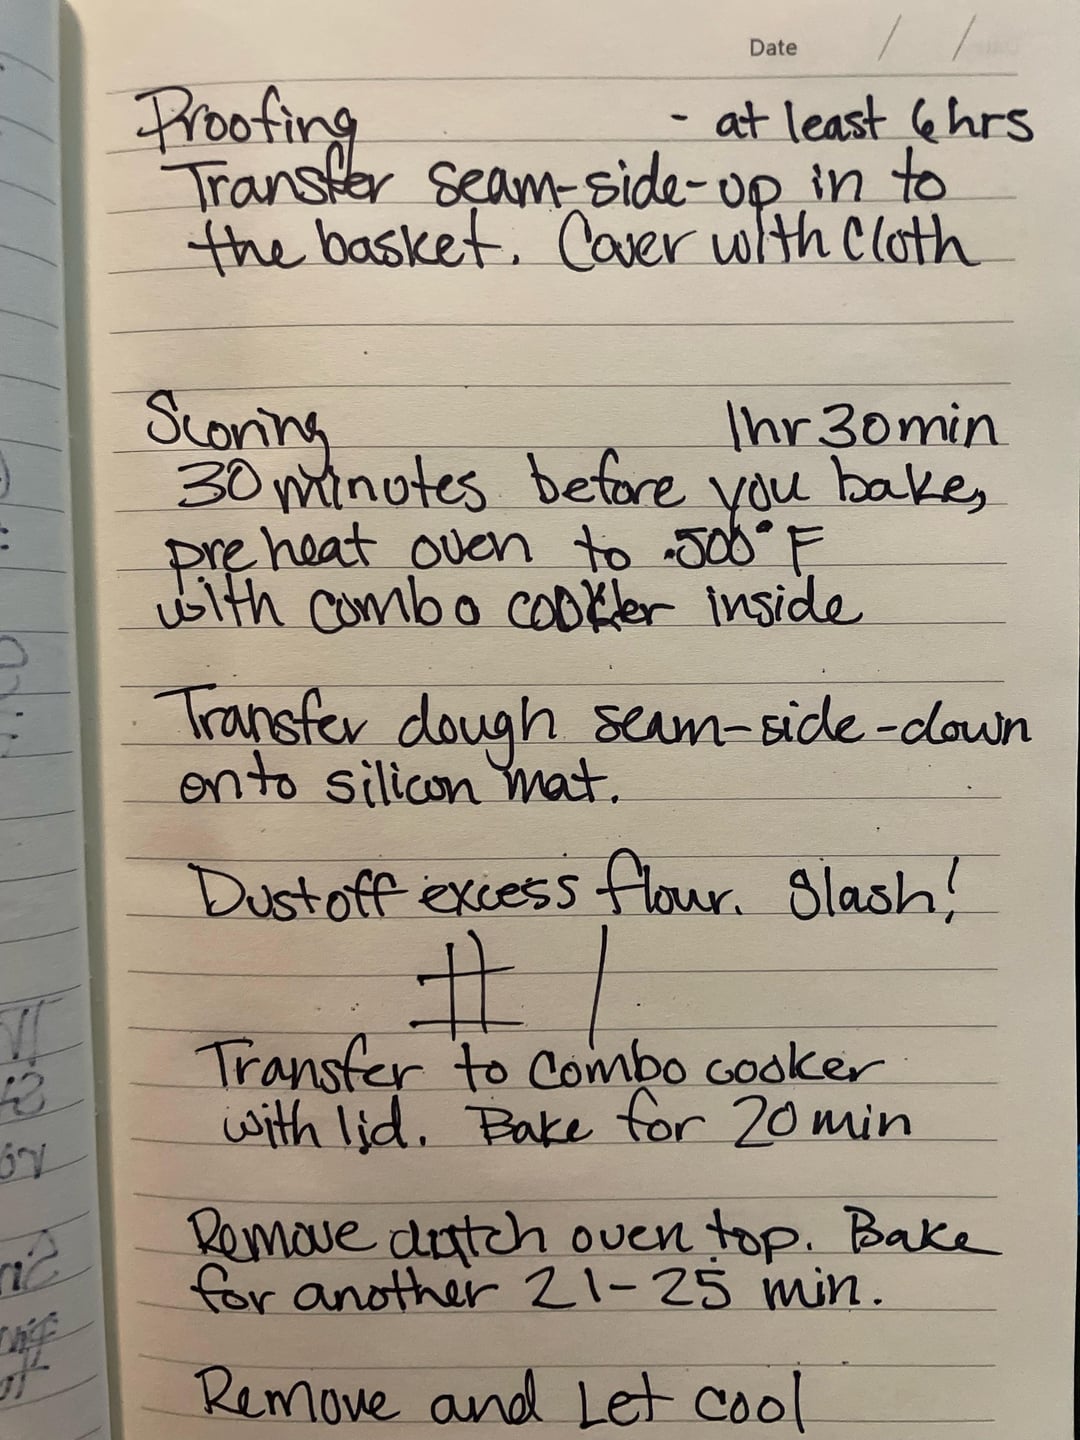 Date / /
Proofing - at least 6 hrs
Transfer seam-side-up in to
the basket. Cover with Cloth
Scoring 1hr 30 min
30 minutes before you bake,
preheat oven to 500°F
with combo cooker inside
Transfer dough seam-side-down
onto silicon mat.
Dust off excess flour. Slash!
# /
Transfer to combo cooker
with lid. Bake for 20 min
Remove dutch oven top. Bake
for another 21-25 min.
Remove and Let cool